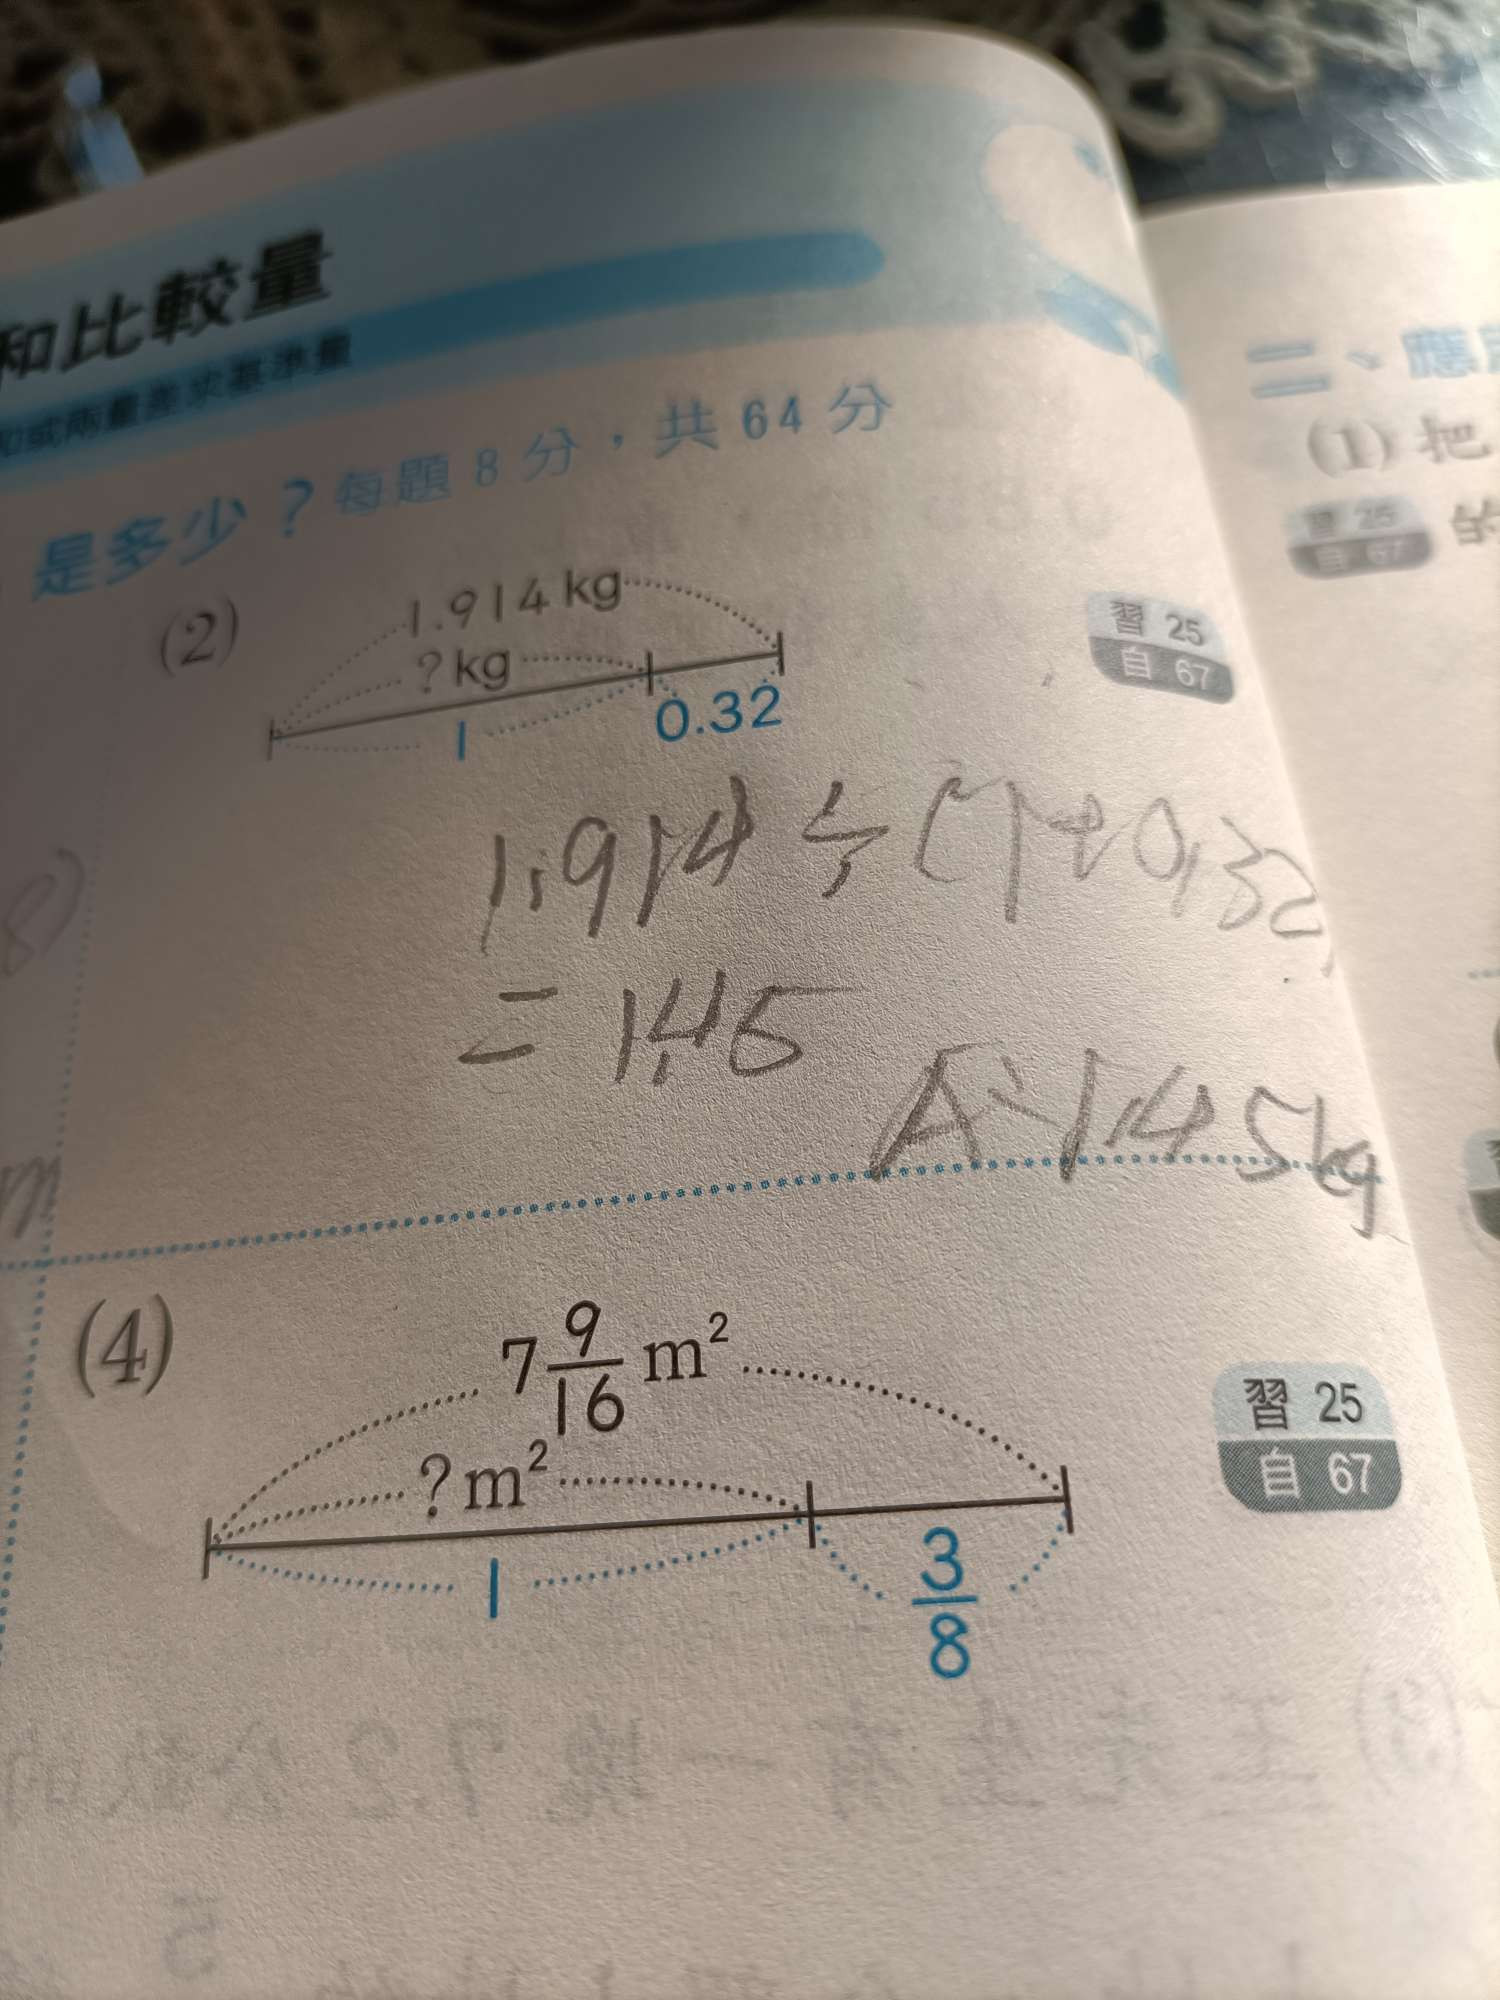 和比較量
和或兩量差求基準量
是多少？每題 8 分，共 64 分
(2)
1.914 kg
? kg
1
0.32
習 25
自 67
1.914÷(1+0.32
=1.45
A:1.45kg
(4)
7 9/16 m²
? m²
1
3/8
習 25
自 67
二、應
(1) 把
習 25
自 67
8)
m